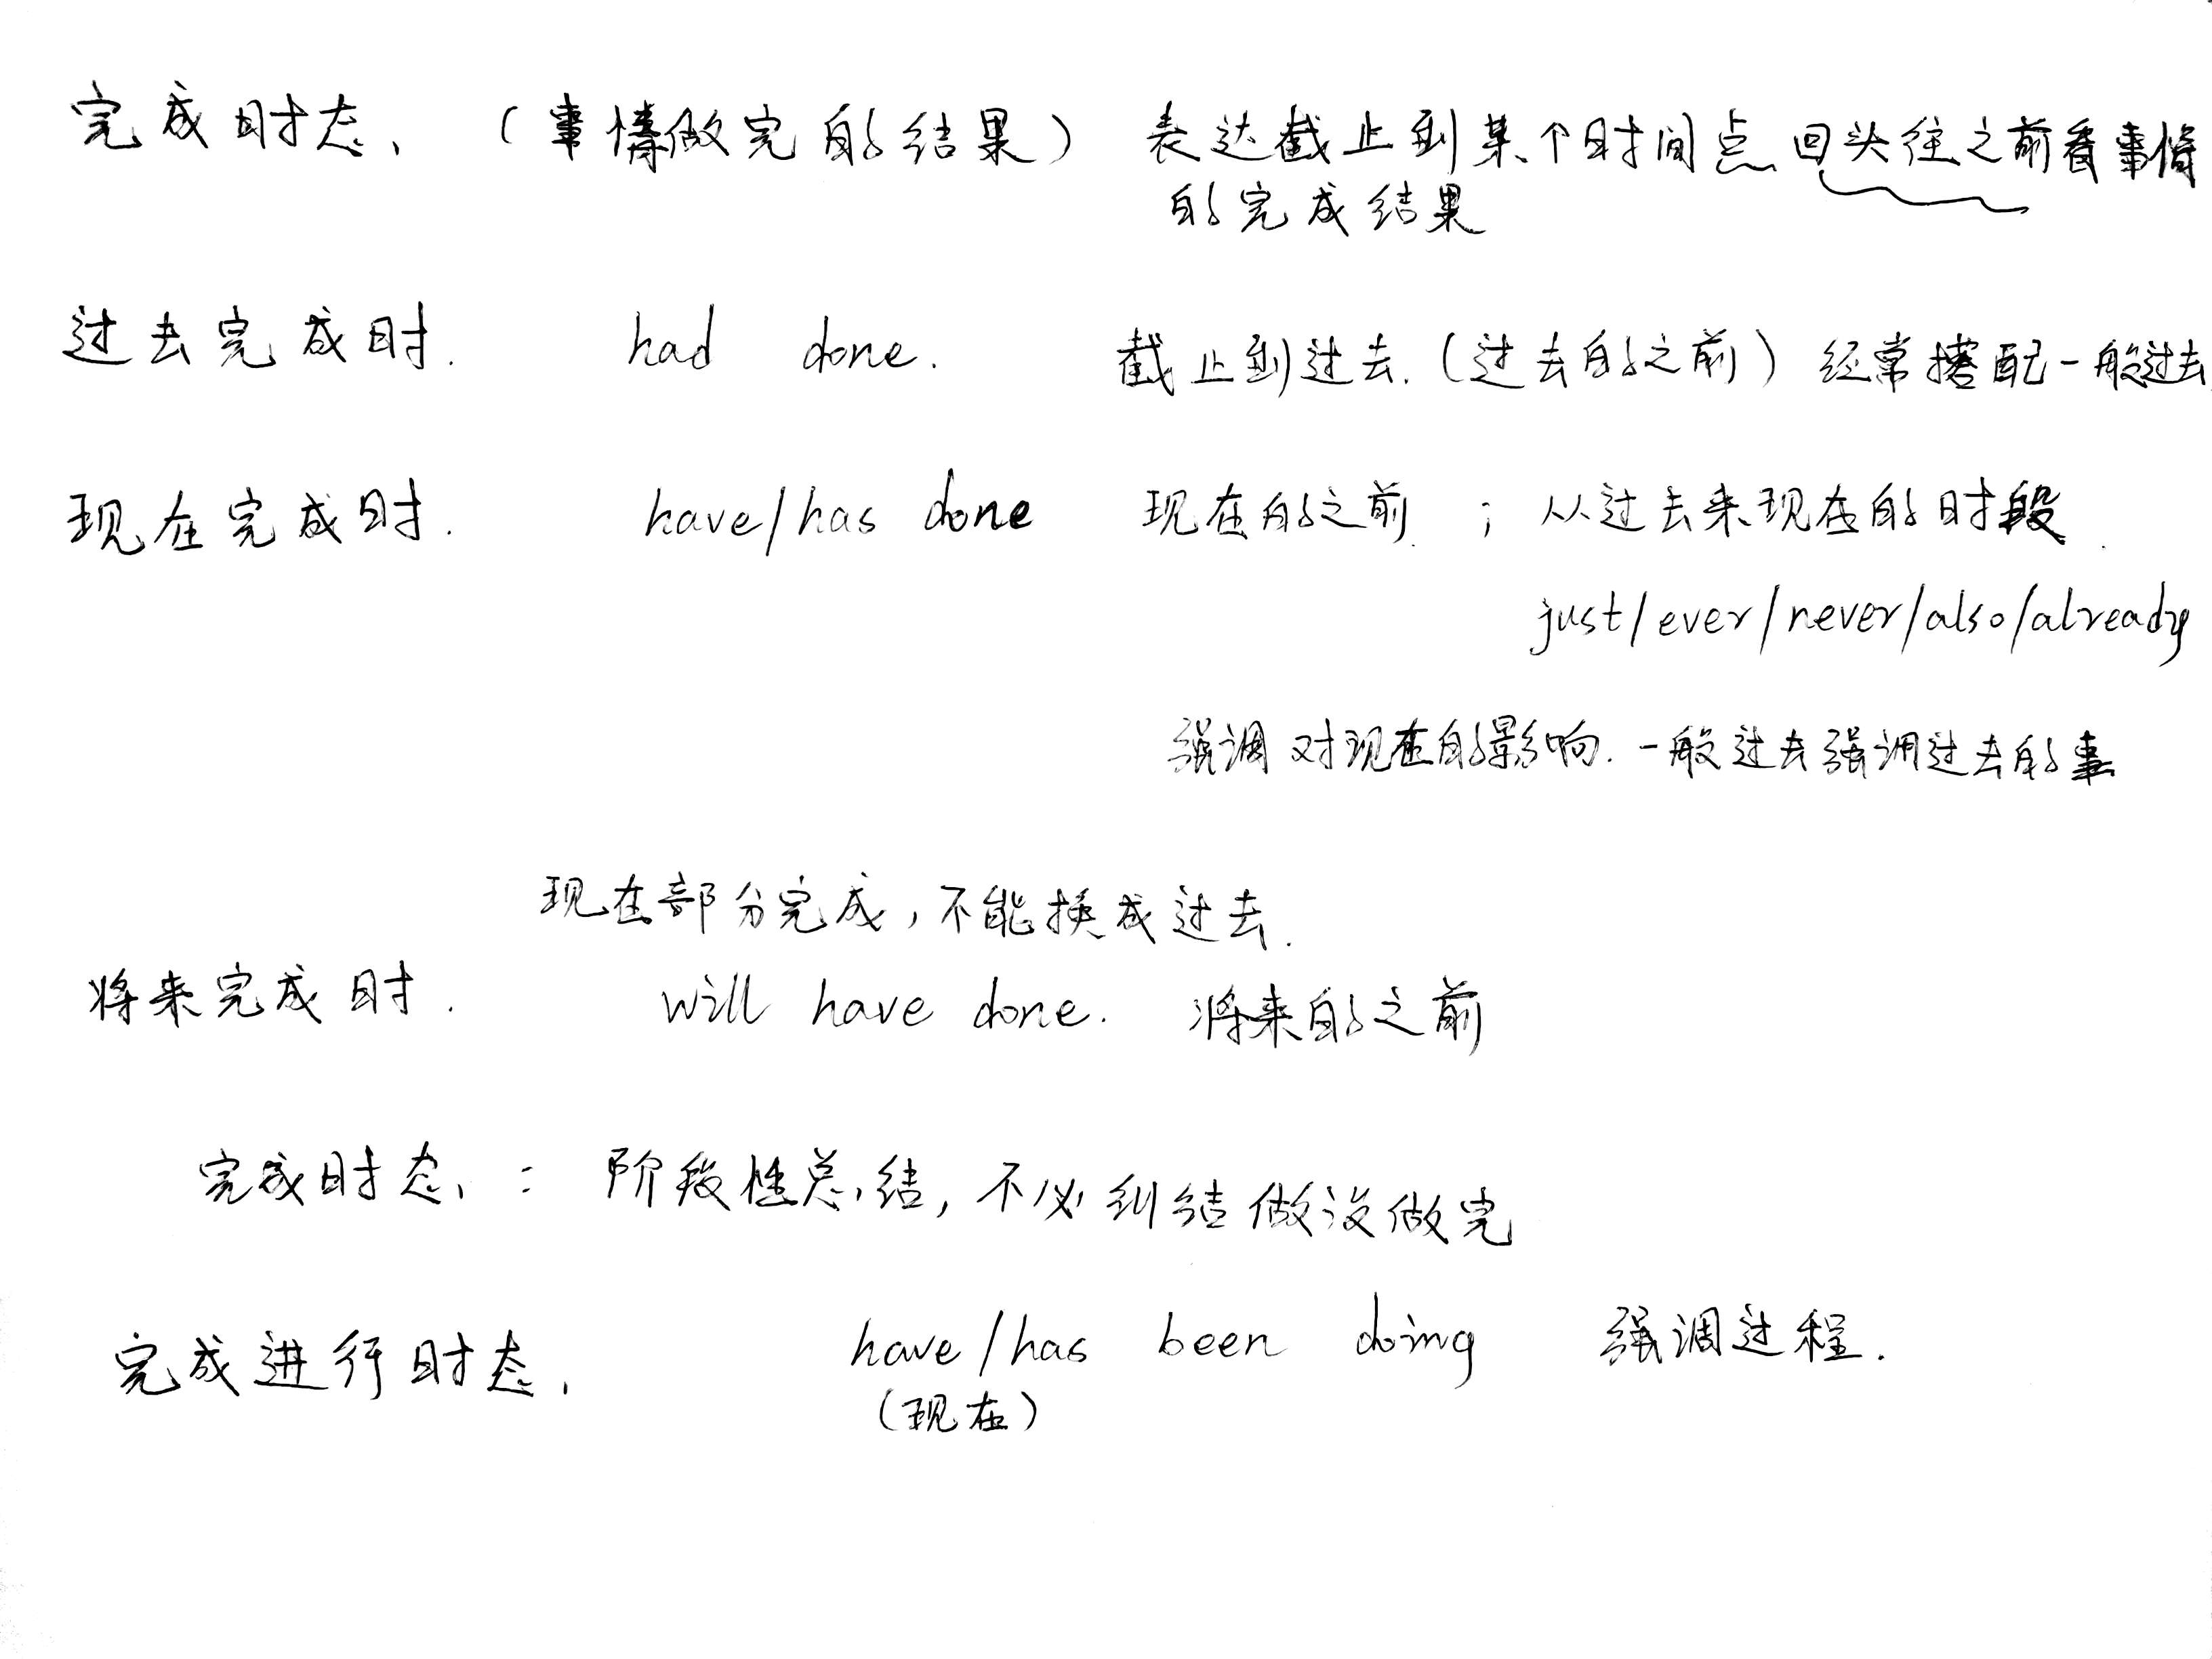 完成时态、（事情做完的结果） 表达截止到某个时间点 回头往之前看事情
的完成结果
过去完成时. had done. 截止到过去.（过去的之前）经常搭配一般过去
现在完成时. have/has done 现在的之前 ; 从过去来现在的时段.
just/ever/never/also/already
强调对现在的影响. 一般过去强调过去的事
现在部分完成,不能换成过去.
将来完成时. will have done. 将来的之前
完成时态、: 阶段性总结,不必纠结做没做完
完成进行时态、 have/has been doing 强调过程.
（现在）